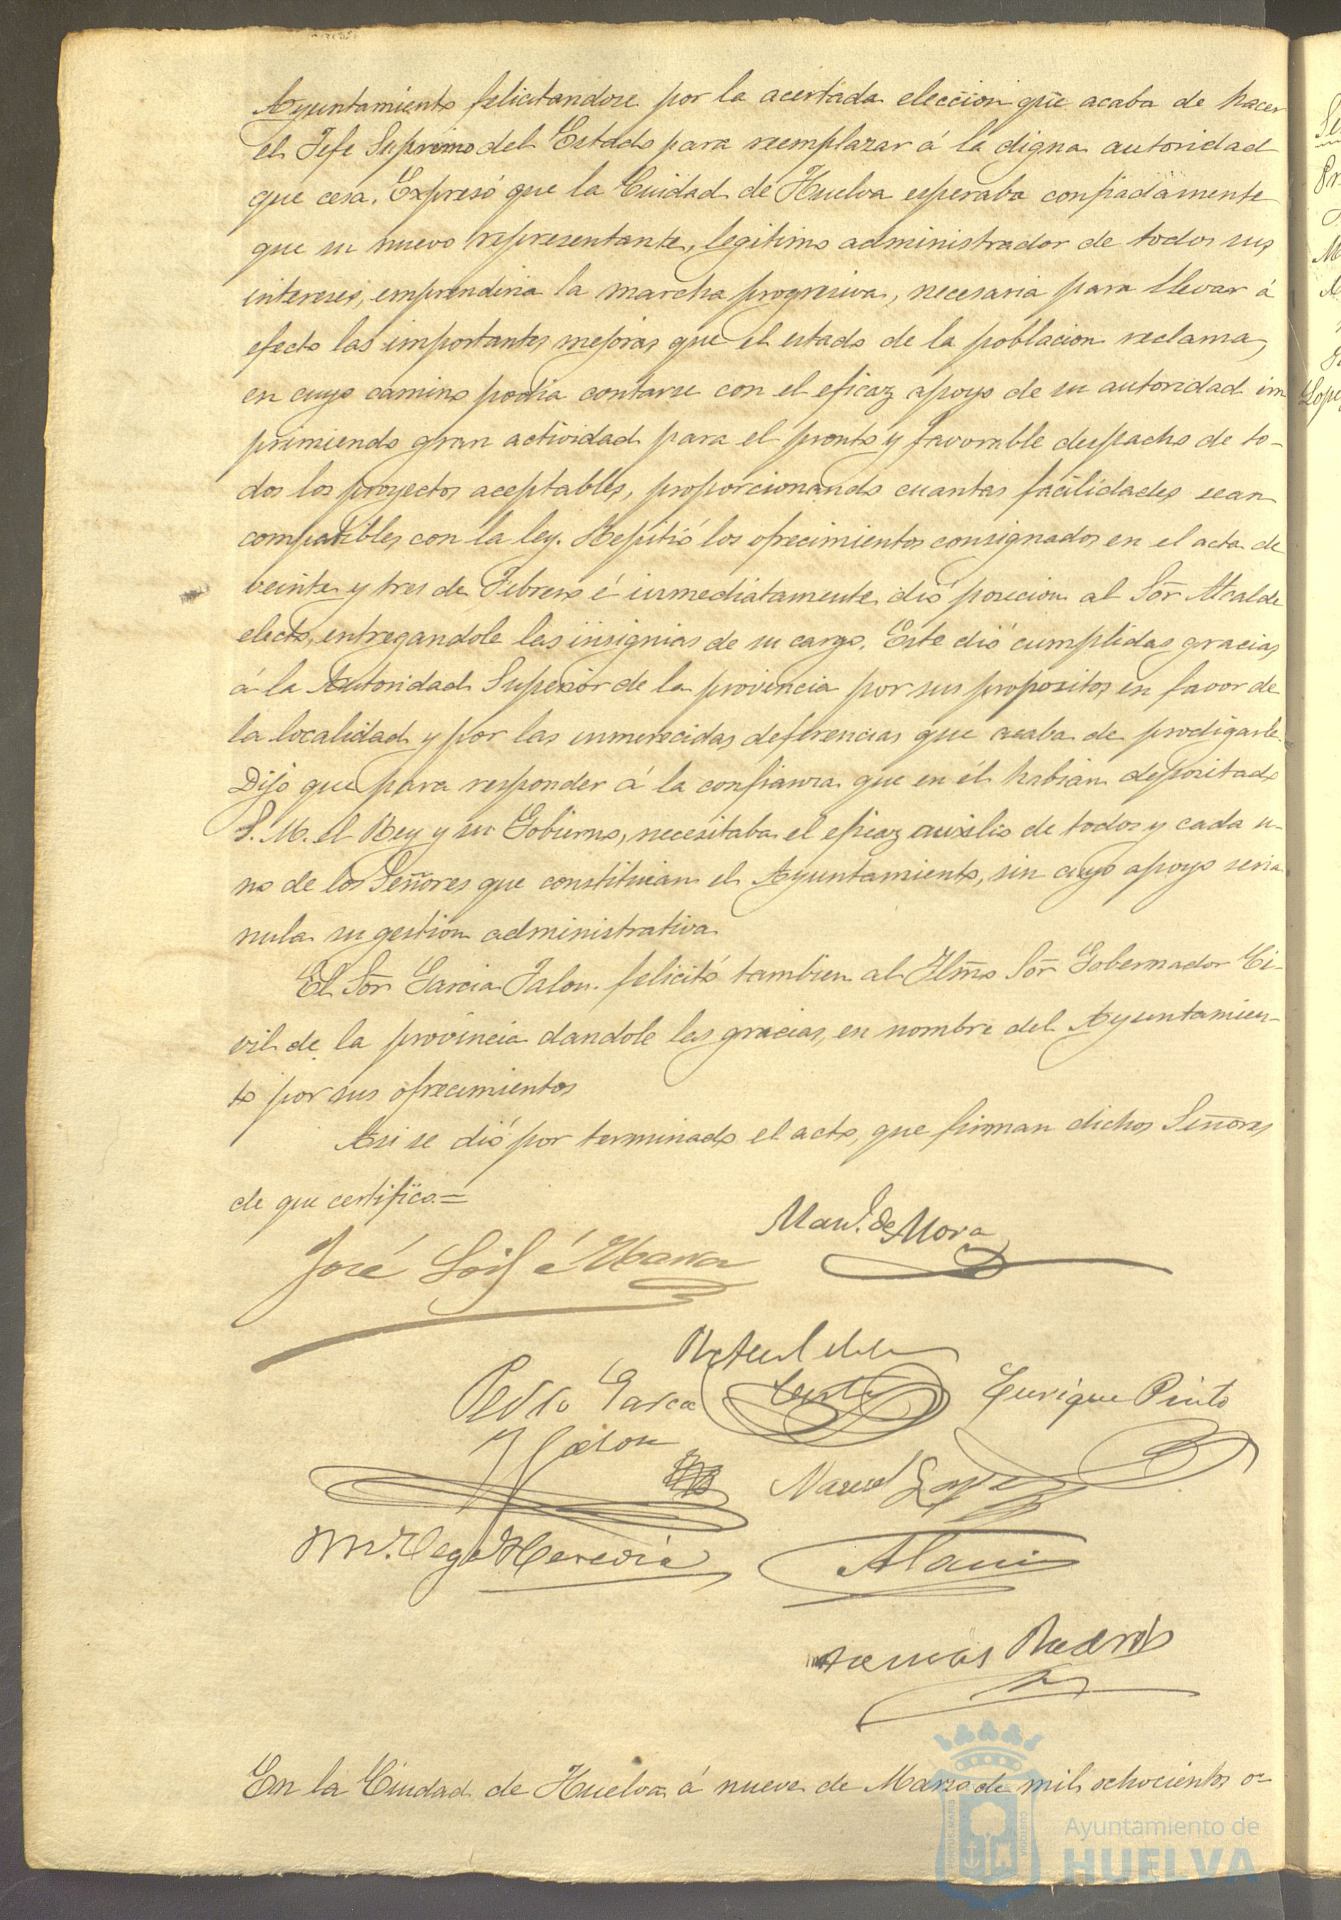 Ayuntamiento felicitandose por la acertada eleccion que acaba de hacer
el Jefe Supremo del Estado para reemplazar á la digna autoridad
que cesa. Expresó que la Ciudad de Huelva esperaba confiadamente
que su nuevo representante, legitimo administrador de todos sus
intereses, emprendiria la marcha progresiva, necesaria para llevar á
efecto las importantes mejoras que el estado de la poblacion reclama,
en cuyo camino podia contarse con el eficaz apoyo de su autoridad im
primiendo gran actividad para el pronto y favorable despacho de to-
dos los proyectos aceptables, proporcionando cuantas facilidades sean
compatibles con la ley. Repitió los ofrecimientos consignados en el acta de
veinte y tres de Febrero é inmediatamente dió posecion al Sõr Alcalde
electo, entregandole las insignias de su cargo. Este dió cumplidas gracias
á la Autoridad Superior de la provincia por sus propositos en favor de
la localidad y por las inmerecidas deferencias que acaba de prodigarle.
Dijo que para responder á la confianza que en él habian depositado
S. M. el Rey y su Gobierno, necesitaba el eficaz auxilio de todos y cada u-
no de los Señores que constituian el Ayuntamiento, sin cuyo apoyo seria
nula su gestion administrativa
El Sõr Garcia Jalon felicitó tambien al Ilmõ Sõr Gobernador Ci-
vil de la provincia dandole las gracias, en nombre del Ayuntamien-
to por sus ofrecimientos
Asi se dió por terminado el acto, que firman dichos Señores
de que certifico.=
Man.l de Mora
José é Ibarra
Rafael de la
Pedro Garcia
Enrique Pinto
Jalon
Manuel Lopez
M. Vega Heredia
Alani
En la Ciudad de Huelva á nueve de Marzo de mil ochocientos o-
Ayuntamiento de
HUELVA